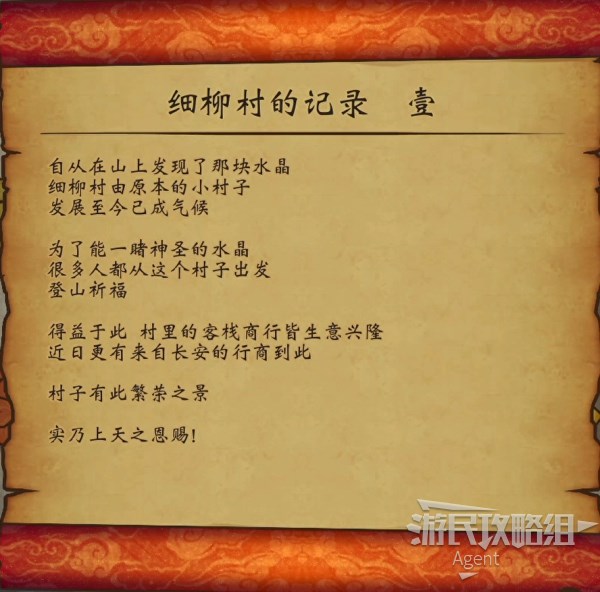 细柳村的记录 壹
自从在山上发现了那块水晶
细柳村由原本的小村子
发展至今已成气候
为了能一睹神圣的水晶
很多人都从这个村子出发
登山祈福
得益于此 村里的客栈商行皆生意兴隆
近日更有来自长安的行商到此
村子有此繁荣之景
实乃上天之恩赐!
游民攻略组
Agent